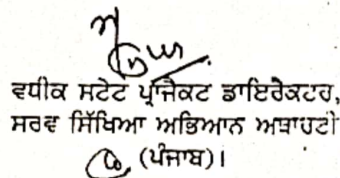 ਵਧੀਕ ਸਟੇਟ ਪ੍ਰਾਜੈਕਟ ਡਾਇਰੈਕਟਰ,
ਸਰਵ ਸਿੱਖਿਆ ਅਭਿਆਨ ਅਥਾਰਟੀ
(ਪੰਜਾਬ)।